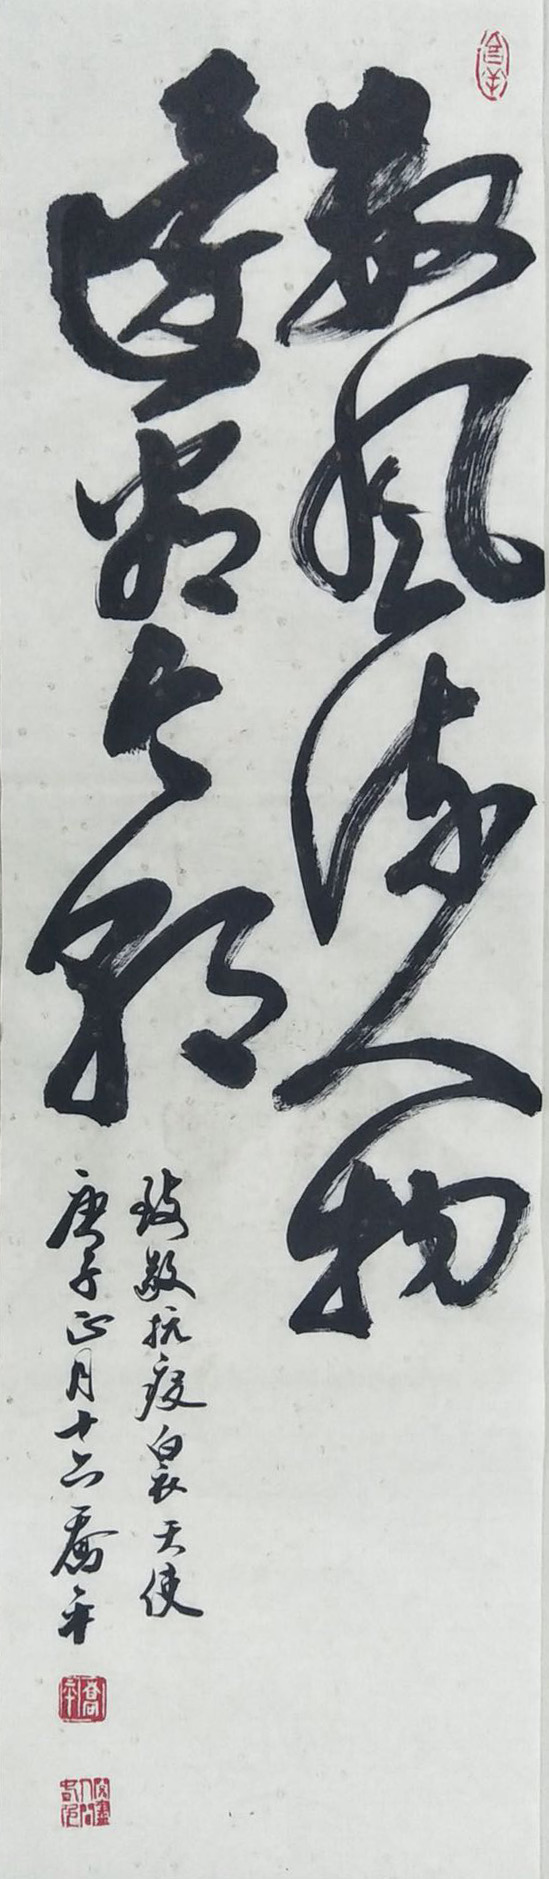 数风流人物
还看今朝
致敬抗疫白衣天使
庚子正月十六喬平
喬平